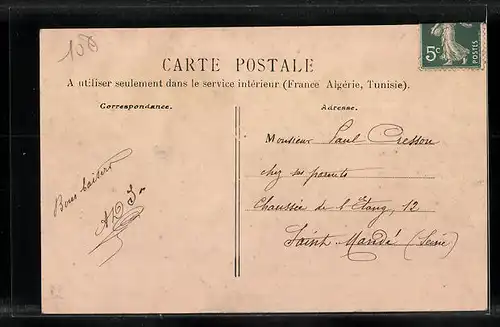 5c
POSTES
CARTE POSTALE
A utiliser seulement dans le service intérieur (France Algérie, Tunisie).
Correspondance.
Adresse.
Monsieur Paul Cresson
chez ses parents
Chaussée de l'Etang, 12
Saint Mandé (Seine)
Bons baisers